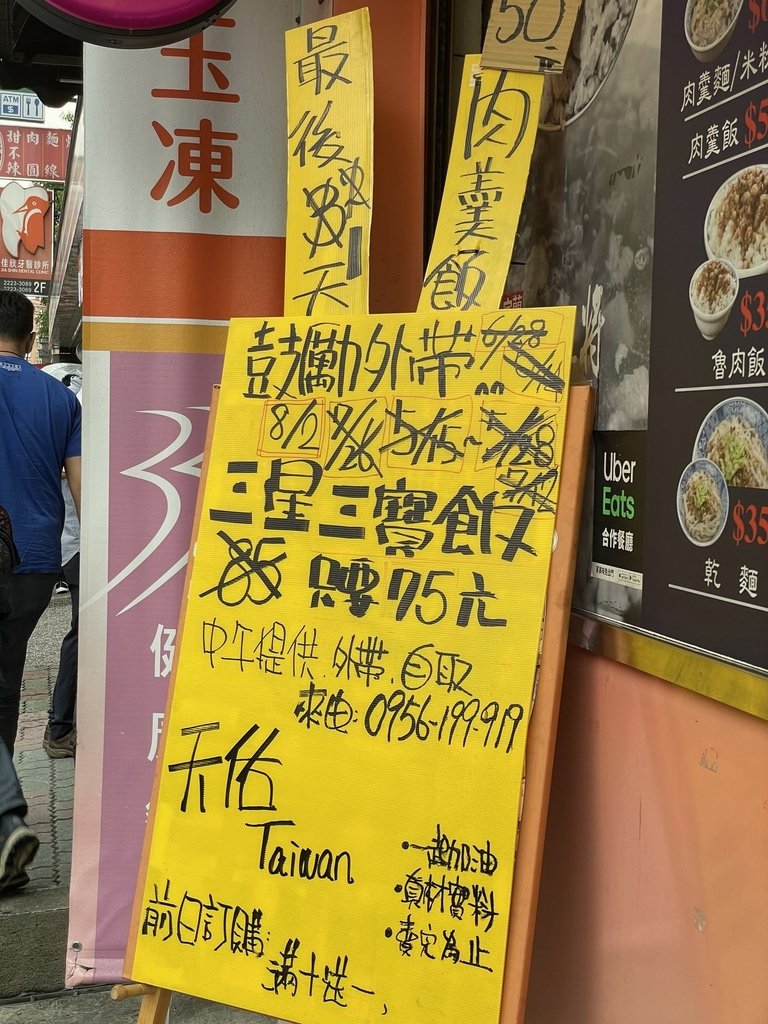 玉凍
ATM
$
甜不辣
肉圓
麵線
佳欣牙醫診所
JIA SHIN DENTAL CLINIC
2223-3089
2223-3069
2F
最後
天
50.-
肉羹飯
鼓勵外帶
6/28
8/2
7/26
5/15~
三星三寶飯
85 只要75元
中午提供.外帶.自取
來电:0956-199-919
天佑
Taiwan
・一起加油
・真材實料
・賣完為止
前日訂購:
滿十送一,
肉羹麵/米粉
肉羹飯 $5
$3
魯肉飯
Uber
Eats
合作餐廳
$35
乾麵